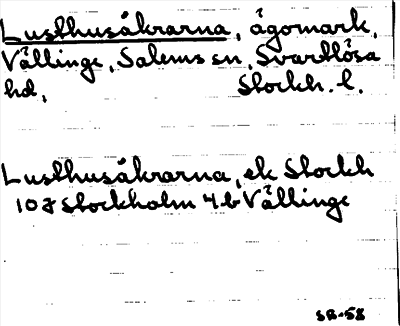 Lusthusåkrarna, ägomark,
Vällinge, Salems sn, Svartlösa
hd, Stockh. l.
Lusthusåkrarna, ek Stockh
10J Stockholm 4b Vällinge
SB-58